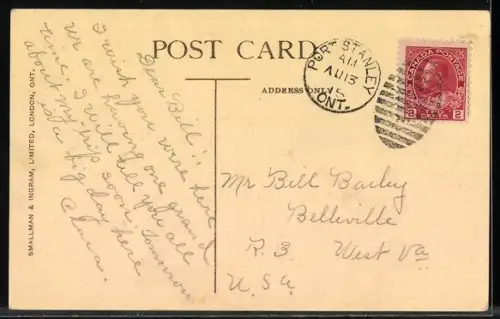 POST CARD
ADDRESS ONLY
PORT STANLEY
AM
AU 13
15
ONT.
CANADA POSTAGE
2 CENTS 2
Dear Bill:
I wish you were here
we are having one grand
time. I will tell you all
about my trip soon. Tomorrow
is a big day here
Clara.
Mr Bill Bailey
Belleville
R. 3. West Va
U.S.a.
SMALLMAN & INGRAM, LIMITED, LONDON, ONT.